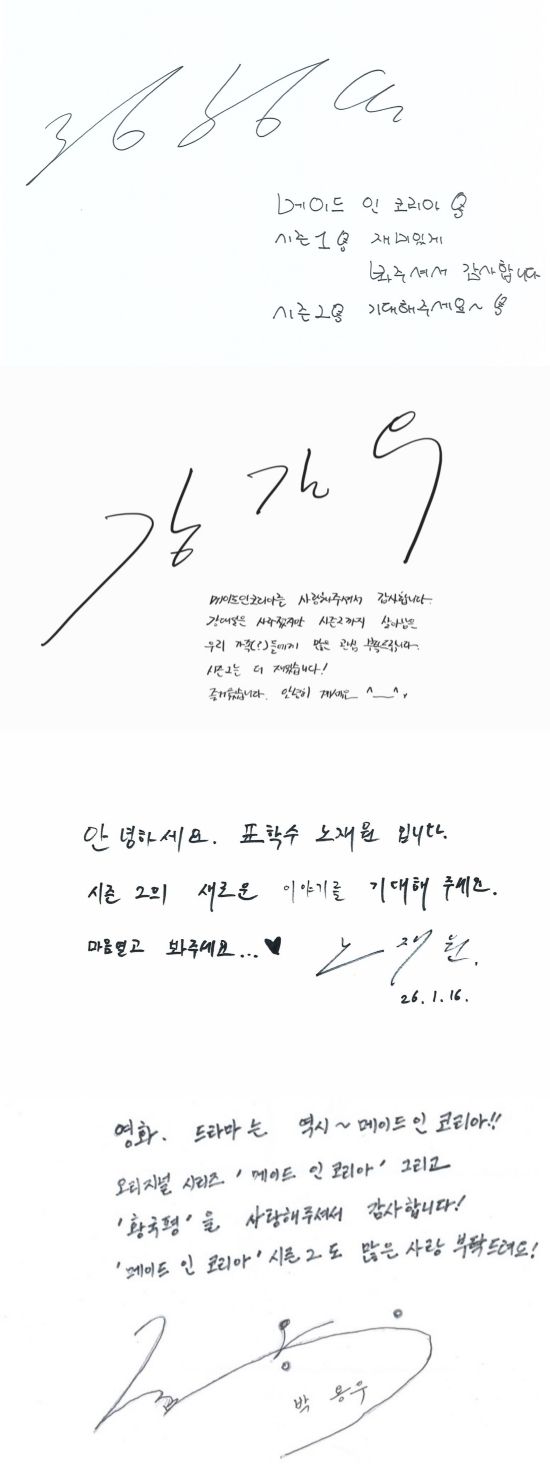 메이드 인 코리아
시즌1 재미있게
봐주셔서 감사합니다
시즌2 기대해주세요~
강길우
메이드인코리아를 사랑해주셔서 감사합니다.
강대일은 사라졌지만 시즌2까지 살아남은
우리 가족(?)들에게 많은 관심 부탁드립니다.
시즌2는 더 재밌습니다!
즐거웠습니다. 안녕히 계세요 ^__^,
안녕하세요. 표학수 노재원 입니다.
시즌 2의 새로운 이야기를 기대해 주세요.
마음열고 봐주세요...♥
노재원.
26.1.16.
영화. 드라마는 역시~메이드인 코리아!!
오리지널 시리즈 '메이드 인 코리아' 그리고
'황국평'을 사랑해주셔서 감사합니다!
'메이드 인 코리아' 시즌2도 많은 사랑 부탁드려요!
박 용우